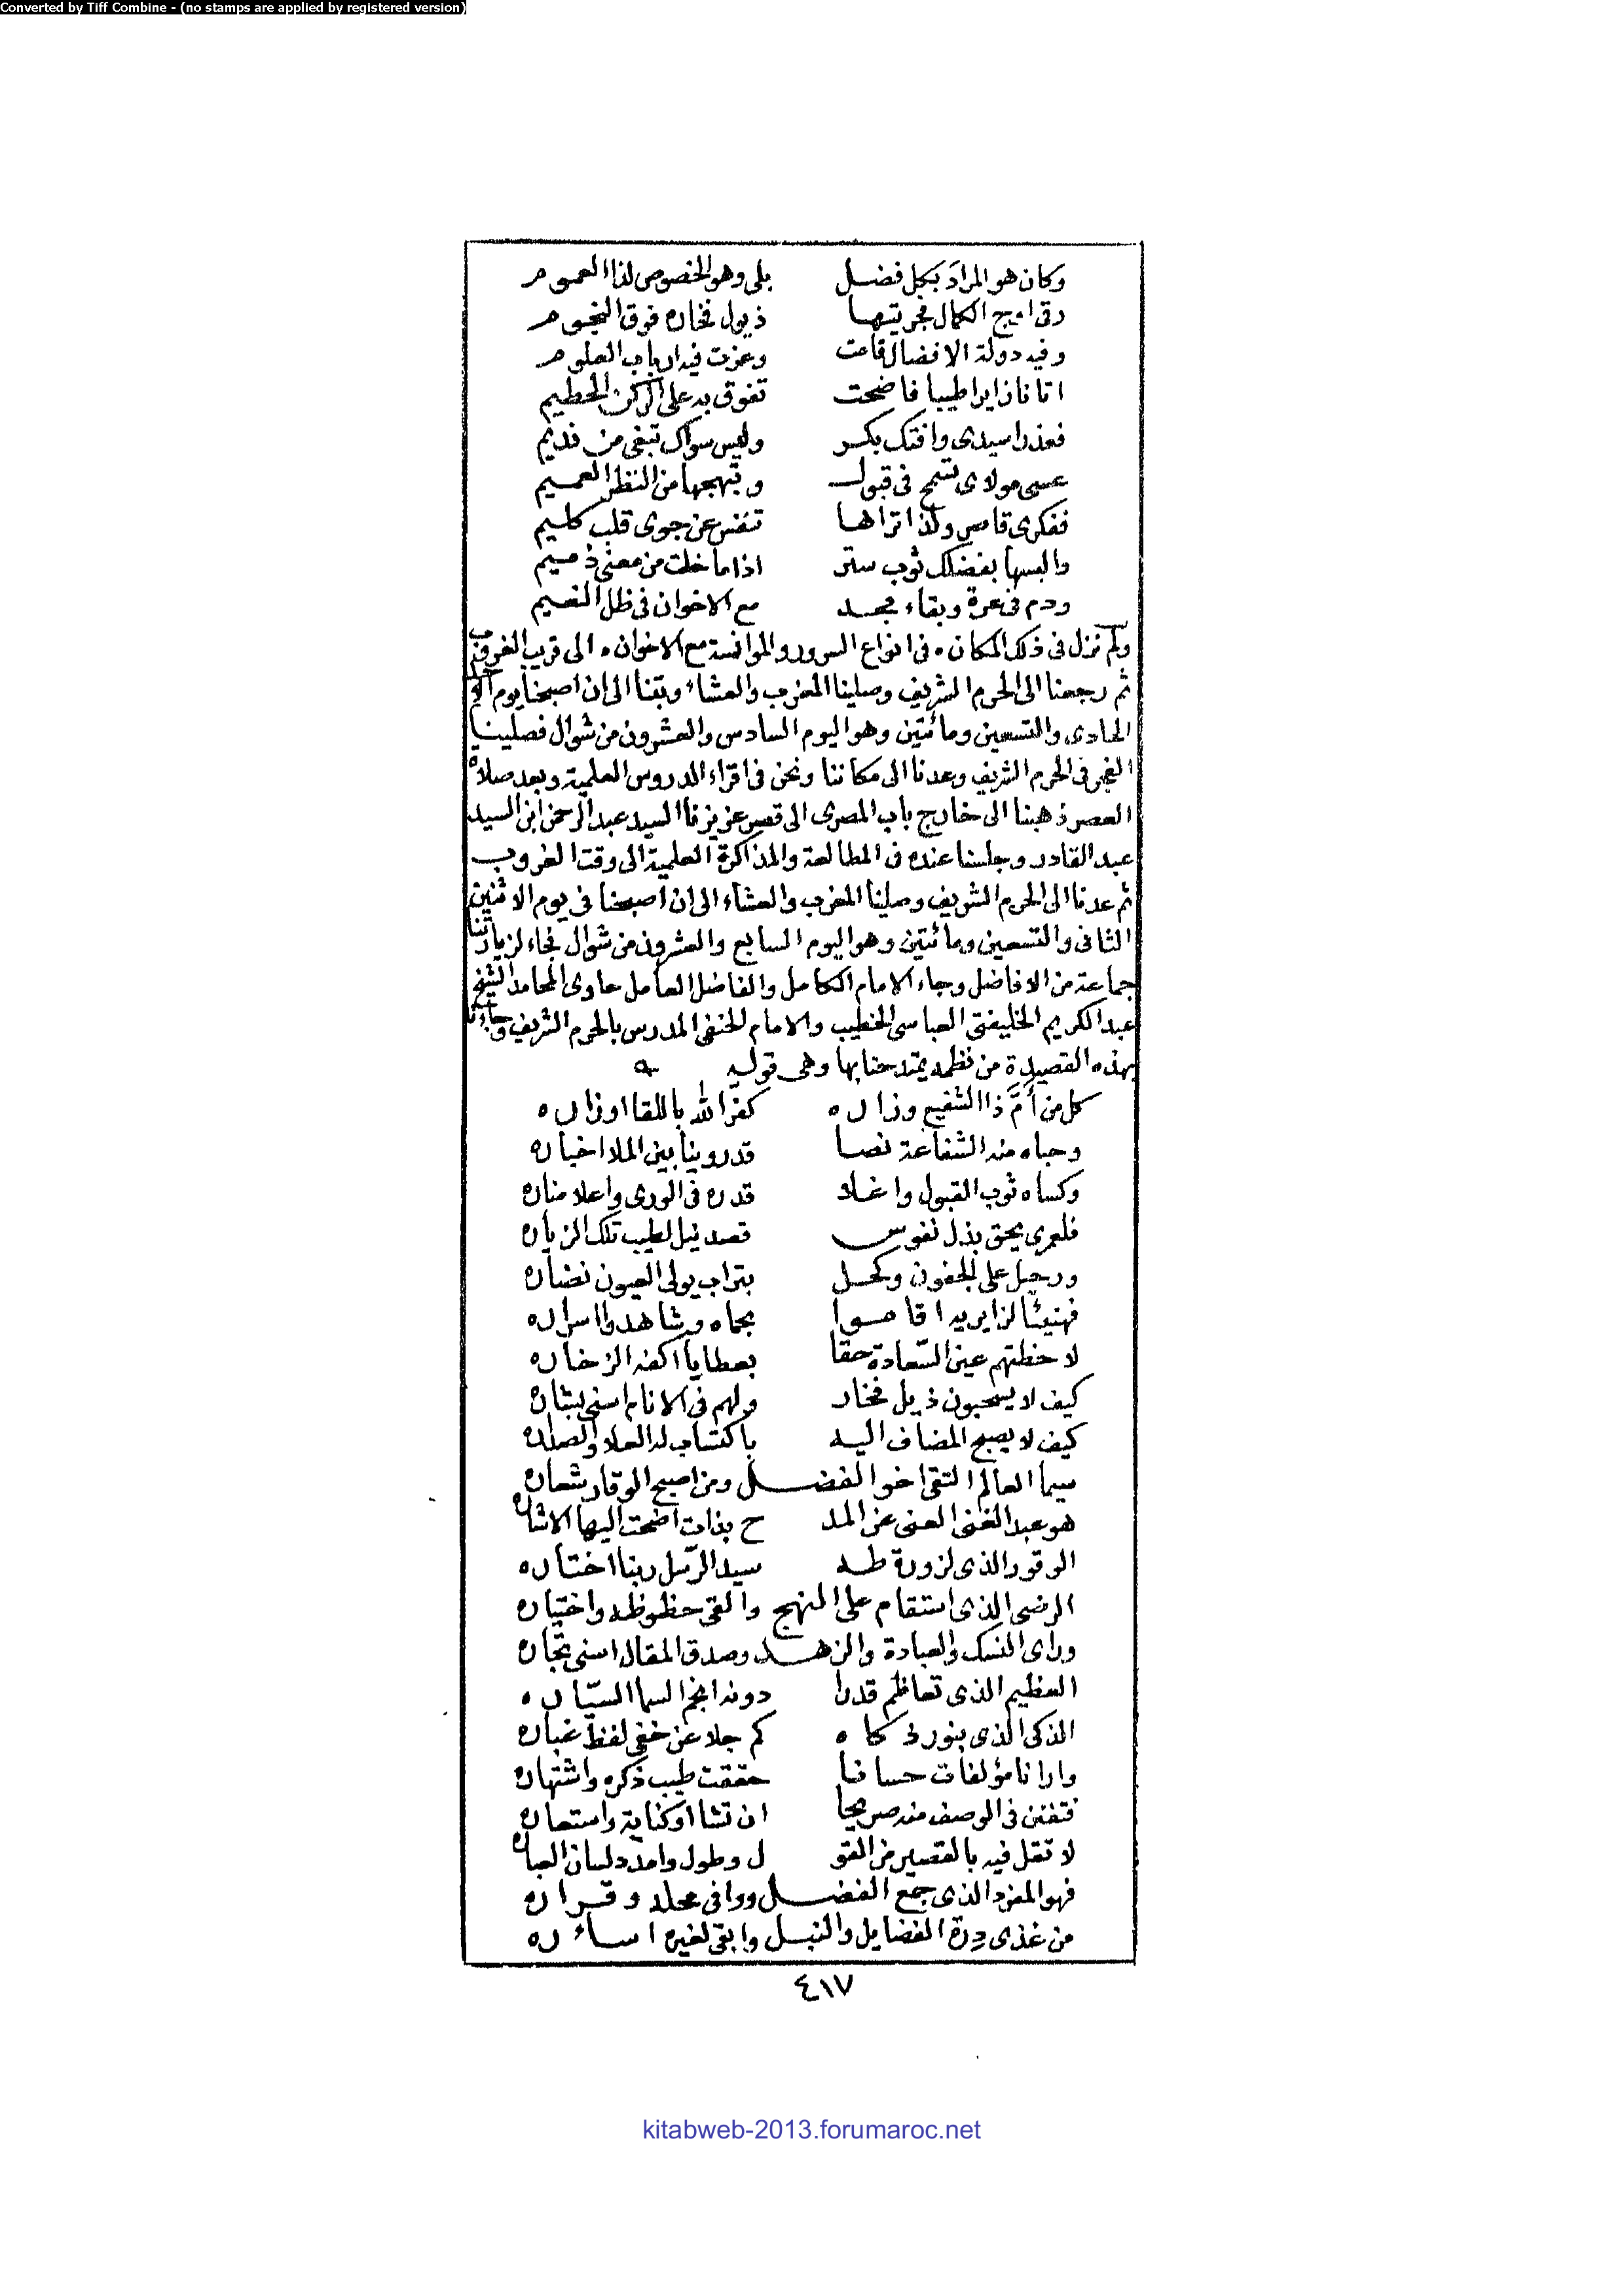 Converted by Tiff Combine - (no stamps are applied by registered version)
وكان هو المراد بكل فضل بلى وهو الخصوص لذا العموم
رقى اوج الكمال فجر تيها ذيول فخاره فوق النجوم
وفيه دولة الافضال قامت وعزت فيه ارباب العلوم
اتانا زايرا طيبا فاضحت تفوق به على الركن الحطيم
فعذرا سيدى وافتك بكر وليس سواك تبغى من قديم
عسى مولاى تسمح فى قبول وتبهجها من النظر العميم
ففكرى قاصر ولذا تراها تنفس عن جوى قلب كليم
والبسها بفضلك ثوب ستر اذا ما خلت من معنى ذميم
ودم فى عزة وبقاء مجد مع الاخوان فى ظل النعيم
ولم نزل فى ذلك المكان ، فى انواع السرور والموانسة مع الاخوان ، الى قريب الغروب
ثم رجعنا الى الحرم الشريف وصلينا المغرب والعشاء وبتنا الى ان اصبحنا يوم الاحد
الحادى والتسعين ومائتين وهو اليوم السادس والعشرون من شوال فصلينا
الفجر فى الحرم الشريف وعدنا الى مكاننا ونحن فى اقراء الدروس العلمية وبعد صلاة
العصر ذهبنا الى خارج باب المصرى الى قصر عزيزنا السيد عبد الرحمن ابن السيد
عبد القادر وجلسنا عنده فى المطالعة والمذاكرة العلمية الى وقت الغروب
ثم عدنا الى الحرم الشريف وصلينا المغرب والعشاء الى ان اصبحنا فى يوم الاثنين
الثانى والتسعين ومائتين وهو اليوم السابع والعشرون من شوال فجاء لزيارتنا
جماعة من الافاضل وجاء الامام الكامل والفاضل العامل حاوى المحامد الشيخ
عبد الكريم الخليفتى العباسى الخطيب والامام الحنفى المدرس بالحرم الشريف وجاءنا
بهذه القصيدة من نظمه يمتدحنا بها وهى قوله
كل من أمَّ ذا الشفيع وزاره كفر الله باللقا اوزاره
وحباه منه الشفاعة نصا قد روينا بين الملا اخباره
وكساه ثوب القبول واغلا قدره فى الورى واعلا مناره
فلعمرى يحق بذل نفوس قصد نيل لطيب تلك الزياره
ورحيل على الجفون وكحل بتراب يولى العيون نضاره
فهنيئا لزايريه اقاموا بحماه وشاهدوا اسراره
لاحظتهم عين السعادة حقا بعطايا اكفه الزخاره
كيف لا يسحبون ذيل فخار ولهم فى الانام اسنى بشاره
كيف لا يصبح المضاف اليه باكتساب له العلا والصداره
سيما العالم التقى اخو الفضل ومن اصبح الوقار شعاره
هو عبد الغنى الغنى عن المد ح بذات اضحت اليها الاشاره
الوقور الذى لزورة طه سيد الرسل ربنا اختاره
الرضى الذى استقام على المنهج والقى حظوظه واختياره
وراى النسك والعبادة والزهد وصدق المقال اسنى تجاره
العظيم الذى تعاظم قدرا دونه انجم السما السياره
الذكى الذى بنور ذكاه كم جلا عن خفى لفظ غباره
وارانا مؤلفات حسانا حققت طيب ذكره واشتهاره
فتفنن فى الوصف منه صريحا ان تشا او كناية واستعاره
لا تقل فيه بالقصير من القو ل وطول وامدد لسان العباره
فهو المفرد الذى جمع الفضل ووافى محله وقراره
من غذى درة الفضايل والنبل وابقى لغيره اساره
٤١٧
kitabweb-2013.forumaroc.net